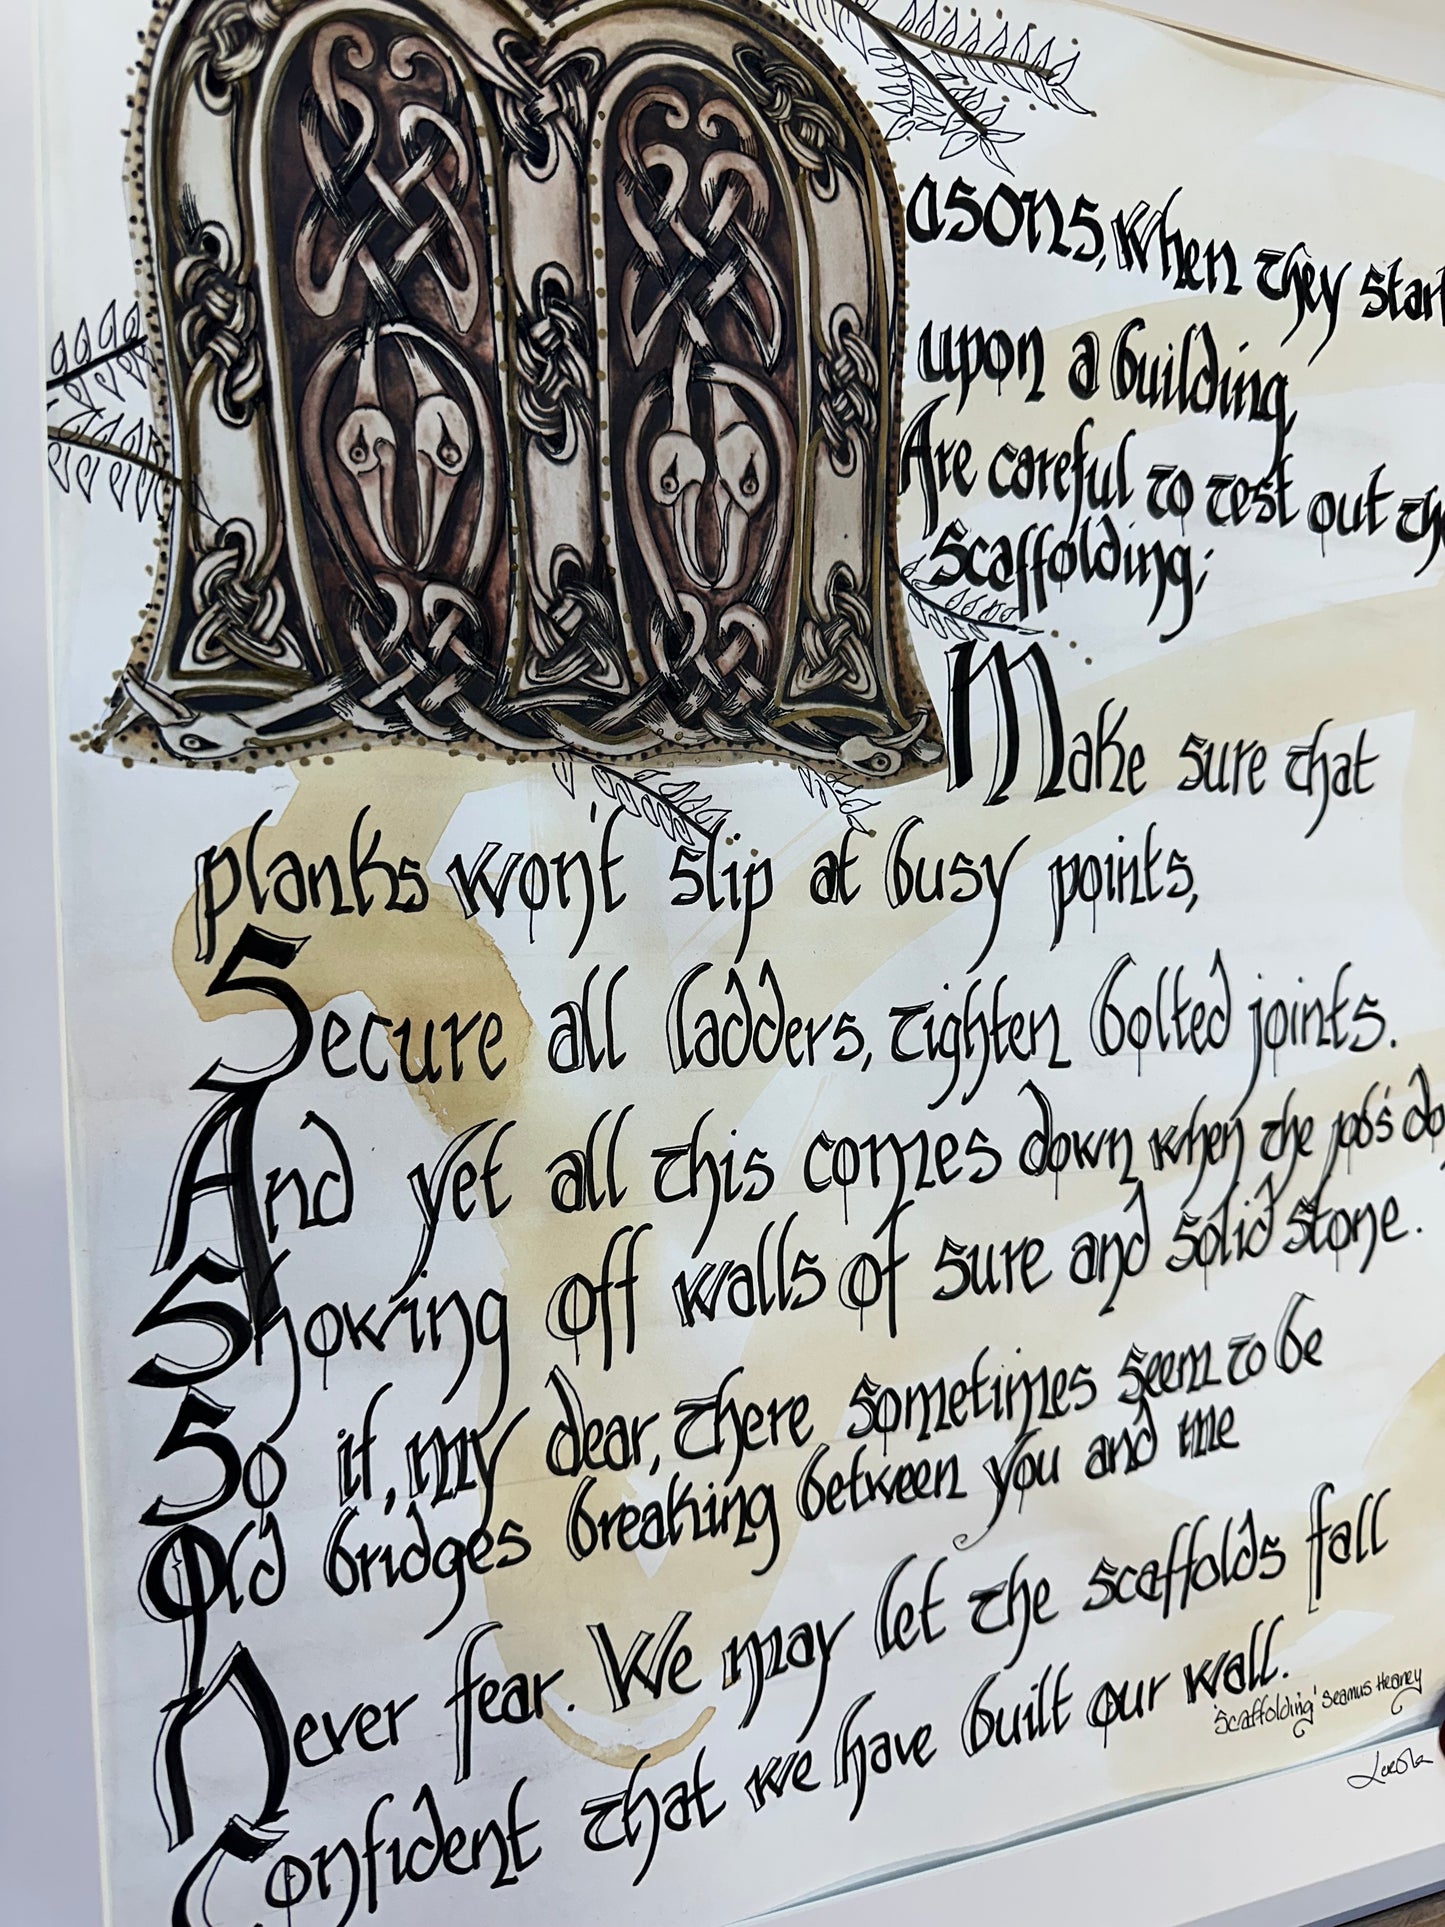 Masons, when they start
upon a building,
Are careful to test out the
Scaffolding;
Make sure that
planks won't slip at busy points,
Secure all ladders, tighten bolted joints.
And yet all this comes down when the job's do
Showing off walls of sure and solid stone.
So if, my dear, there sometimes seem to be
Old bridges breaking between you and me
Never fear. We may let the scaffolds fall
Confident that we have built our wall.
'Scaffolding' Seamus Heaney